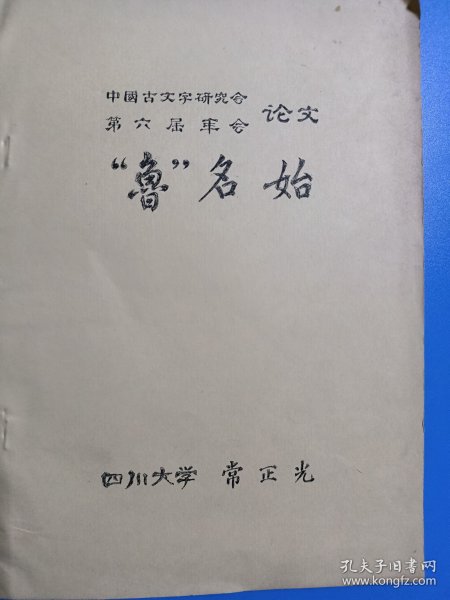 中國古文字研究会
第六届年会 论文
“魯”名始
四川大学 常正光
孔夫子旧书网
www.kongfz.com